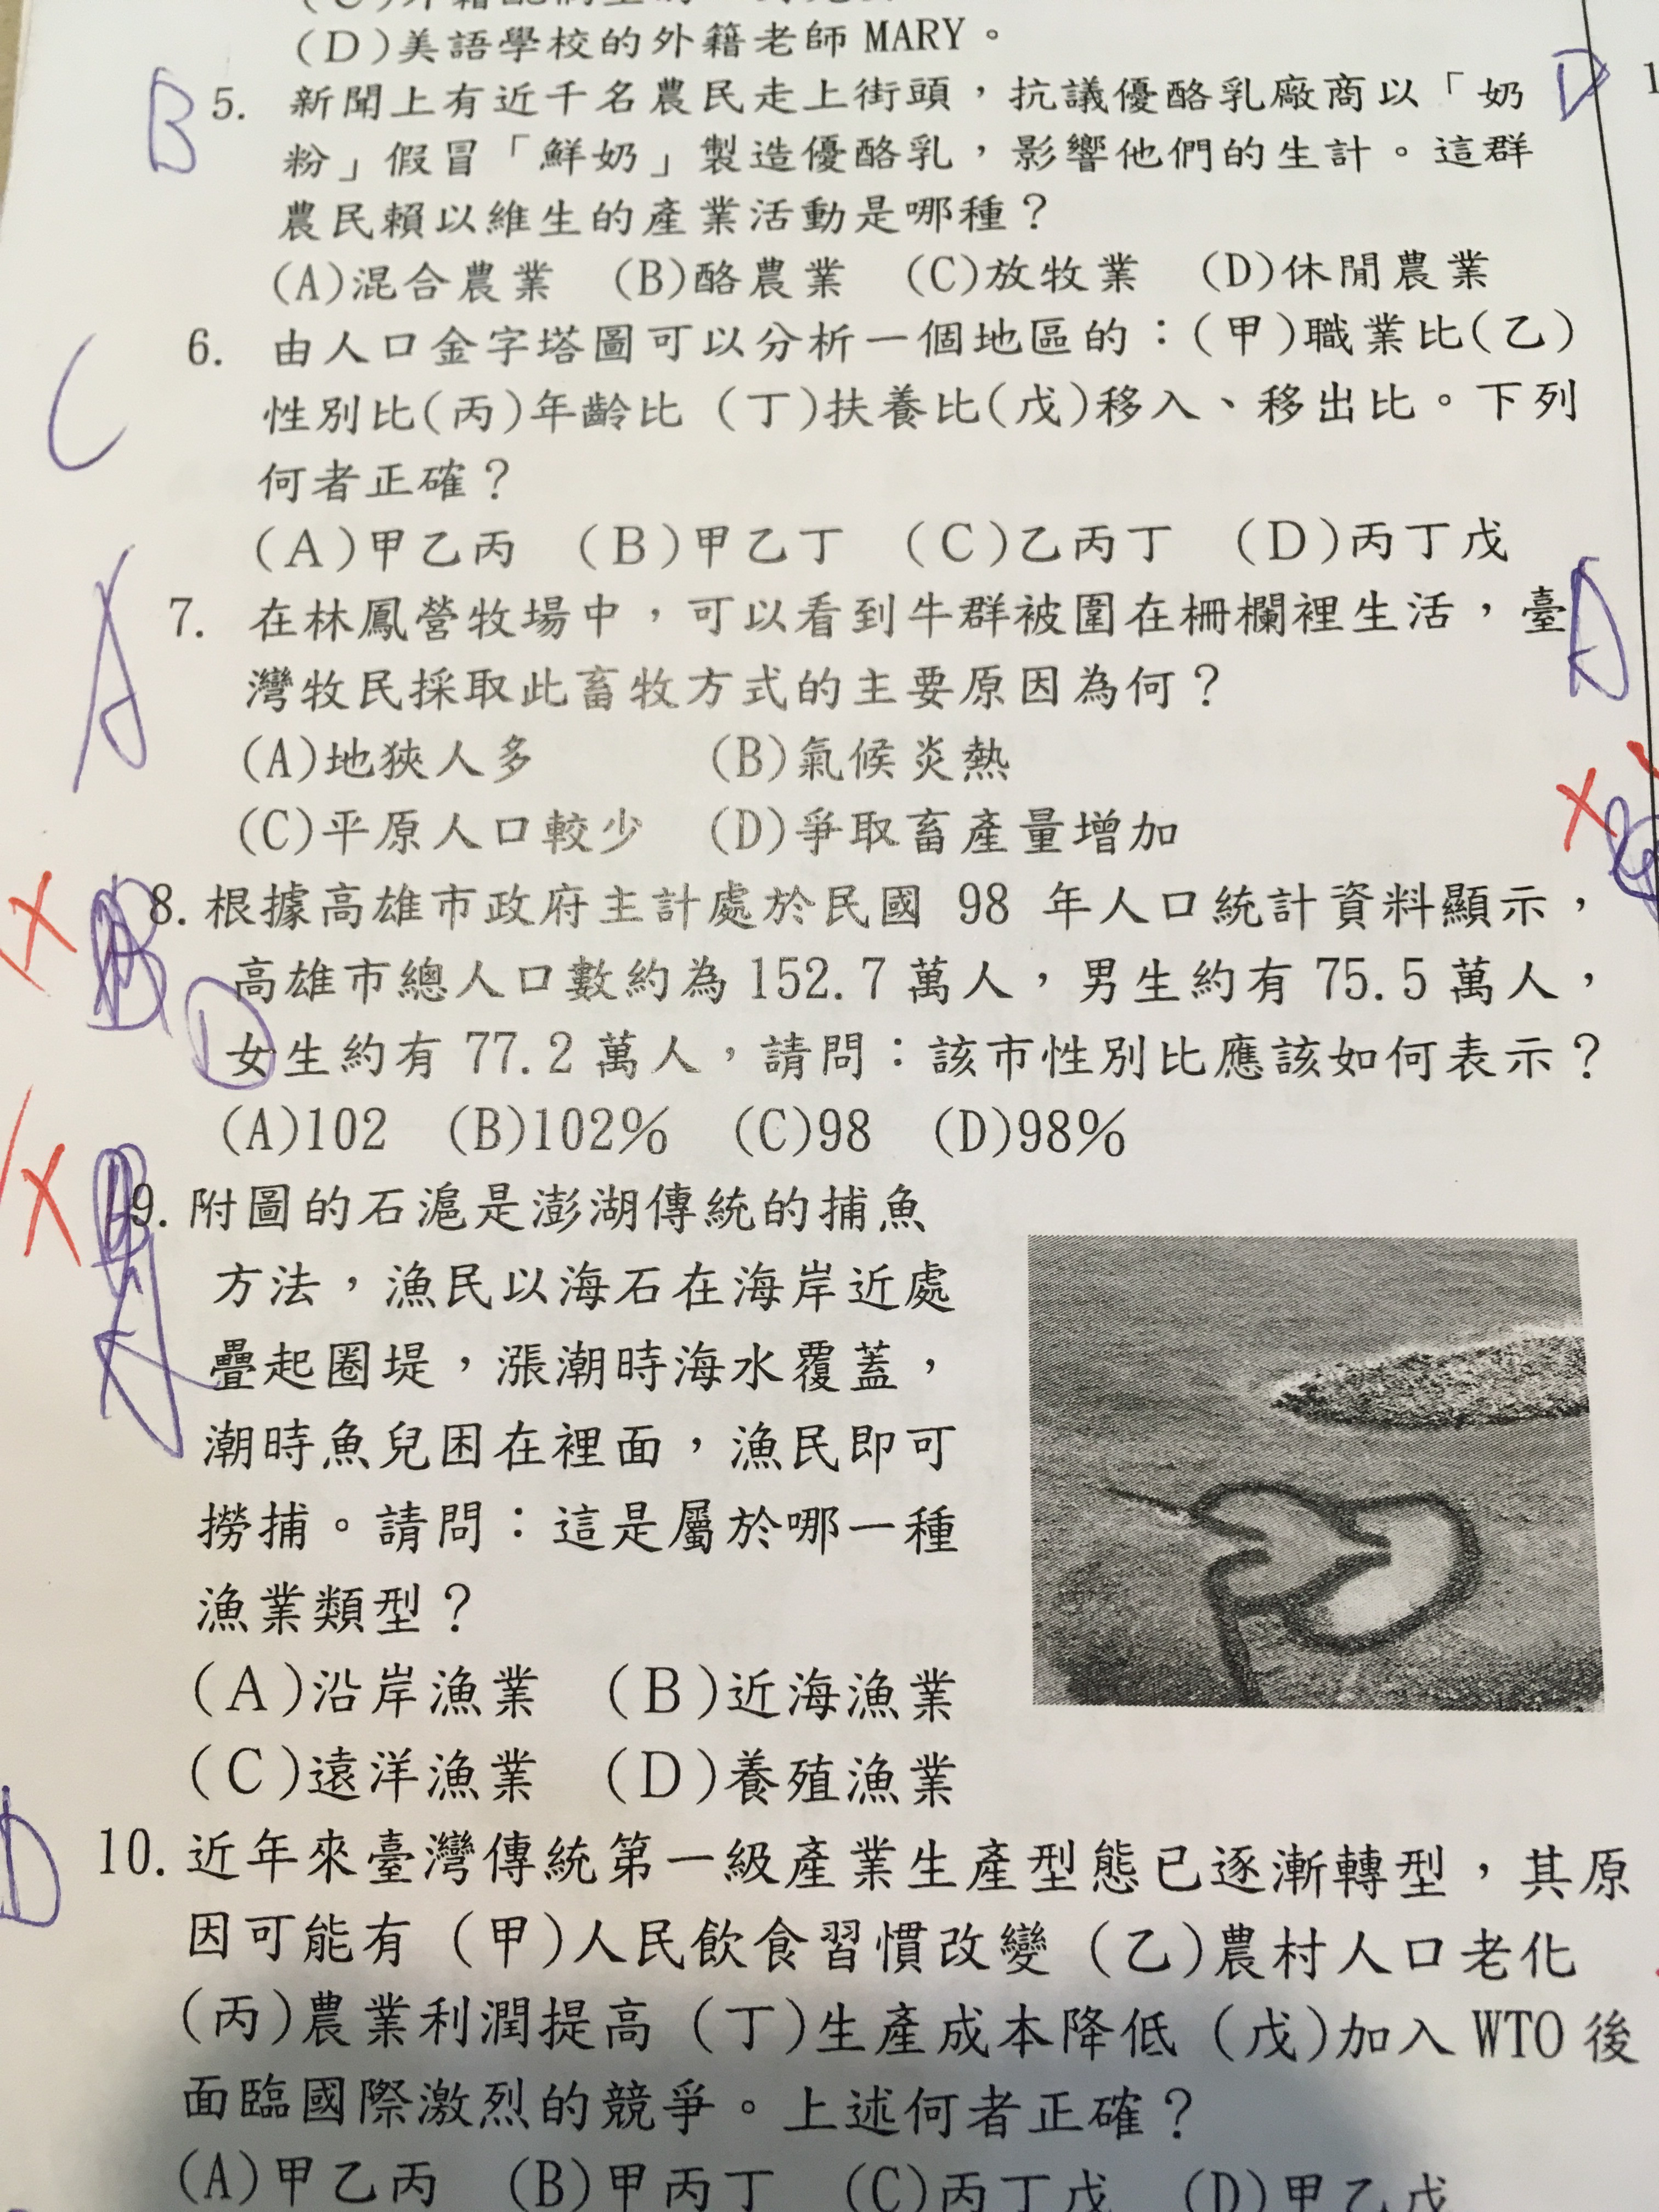 (D)美語學校的外籍老師MARY。
B 5. 新聞上有近千名農民走上街頭，抗議優酪乳廠商以「奶 D 1
粉」假冒「鮮奶」製造優酪乳，影響他們的生計。這群
農民賴以維生的產業活動是哪種？
(A)混合農業 (B)酪農業 (C)放牧業 (D)休閒農業
C 6. 由人口金字塔圖可以分析一個地區的：(甲)職業比(乙)
性別比(丙)年齡比 (丁)扶養比(戊)移入、移出比。下列
何者正確？
(A)甲乙丙 (B)甲乙丁 (C)乙丙丁 (D)丙丁戊
A 7. 在林鳳營牧場中，可以看到牛群被圍在柵欄裡生活，臺
灣牧民採取此畜牧方式的主要原因為何？
(A)地狹人多 (B)氣候炎熱
(C)平原人口較少 (D)爭取畜產量增加
8. 根據高雄市政府主計處於民國 98 年人口統計資料顯示，
高雄市總人口數約為 152.7 萬人，男生約有 75.5 萬人，
D 女生約有 77.2 萬人，請問：該市性別比應該如何表示？
(A)102 (B)102% (C)98 (D)98%
9. 附圖的石滬是澎湖傳統的捕魚
方法，漁民以海石在海岸近處
A 疊起圈堤，漲潮時海水覆蓋，
潮時魚兒困在裡面，漁民即可
撈捕。請問：這是屬於哪一種
漁業類型？
(A)沿岸漁業 (B)近海漁業
(C)遠洋漁業 (D)養殖漁業
D 10. 近年來臺灣傳統第一級產業生產型態已逐漸轉型，其原
因可能有 (甲)人民飲食習慣改變 (乙)農村人口老化
(丙)農業利潤提高 (丁)生產成本降低 (戊)加入 WTO 後
面臨國際激烈的競爭。上述何者正確？
(A)甲乙丙 (B)甲丙丁 (C)丙丁戊 (D)甲乙戊